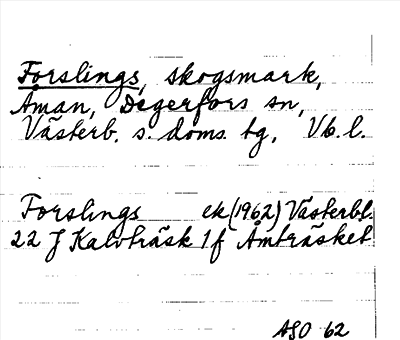 Forslings, skogsmark,
Åman, Degerfors sn,
Västerb. s. doms. tg, Vb. l.
Forslings ek (1962) Västerbl.
22 J Kalvträsk 1f Åmträsket
ASO 62